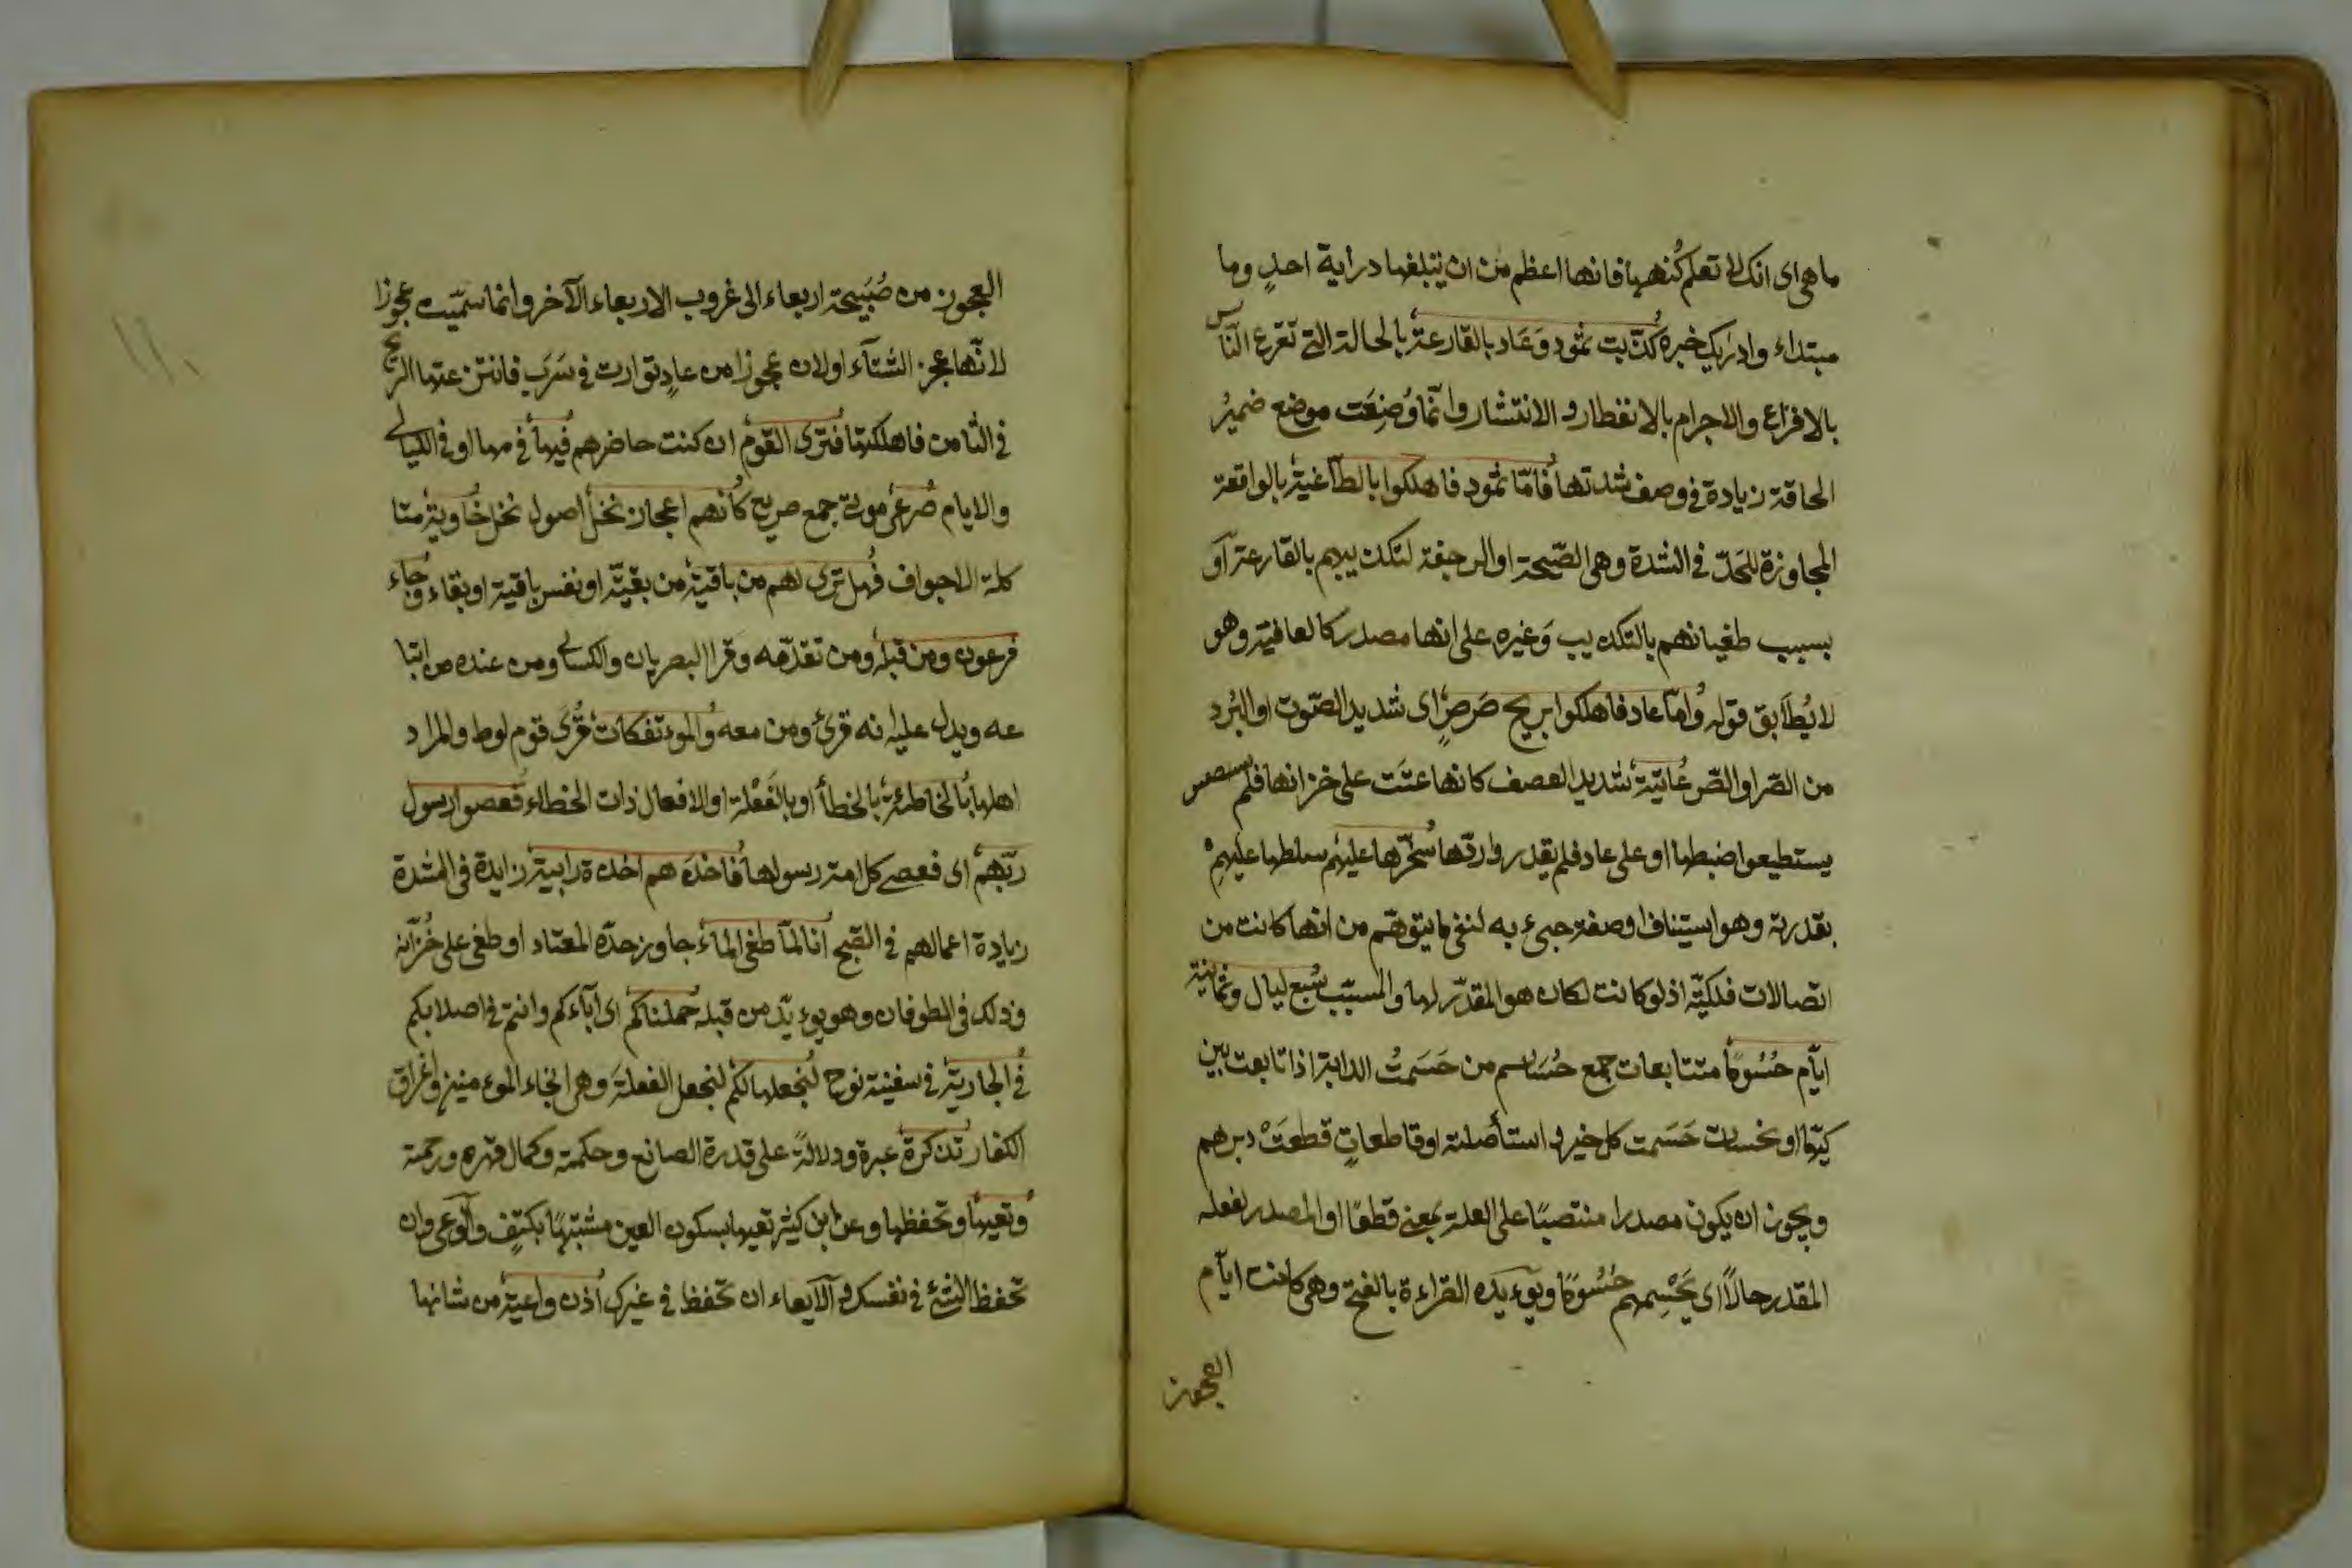 ما هى اى انك لا تعلم كنهها فانها اعظم من ان يبلغها دراية احدٍ وما
مبتداء وادريك خبره كذّبت ثمود وَعَاد بالقارعة بالحالة التى تقرع النّاس
بالافزاع والاجرام بالانفطار والانتشار وانّما وُضِعَت موضع ضميرُ
الحاقة زيادة فى وصف شدتها فامّا ثمود فاهلكوا بالطّاغية بالواقعة
المجاوزة للحَدّ فى الشدة وهى الصّيحة او الرجفة لتكذيبهم بالقارعة او
بسبب طغيانهم بالتكذيب وَغيره على انها مصدر كالعافية وهو
لا يُطَابق قوله وامّا عاد فاهلكوا بريح صَرصَرٍ اى شديد الصّوت او البَرد
من الصّر او الصّر عاتية شديد العصف كانها عتَت على خزانها فلم
يستطيعوا ضبطها او على عاد فلم يقدروا ردّها سخّرها عليهم سلطها عليهِمْ
بقدرته وهو استيناف او صفة جىء به لنفى ما يتوهّم من انها كانت من
اتصالات فلكيّة اذ لو كانت لكان هو المقدّر لها والمسبّب سبع ليال وثمانية
ايّام حُسُومًا متتابعات جمع حُسَاسم من حَسَمتُ الدابة اذا تابعت بين
كيّها او نحسات حَسَمت كل خير واستأصلته او قاطعاتٍ قطعَتْ دبرهم
ويجوز ان يكون مصدرا منتصبًا على العلة بمعنى قطعًا او المصدر لفعله
المقدر حالًا اى يَحْسِمهم حُسُومًا ويؤيده القراءة بالفتح وهى كانت ايّام
العجوز
العجوز من صُبَيحة اربعاء الى غروب الاربعاء الآخر وانما سمّيت عجوزا
لانّها عجز الشتآء او لان عجوزا من عادٍ توارت فى سَرَب فانتزعتها الريح
فى الثامن فاهلكتها فترى القوم ان كنت حاضرهم فيها فى مهابها او فى الليالى
والايام صرعى موتى جمع صريع كانهم اعجاز نخل اصول نخل خاوية متا
كلة الاجواف فهل ترى لهم من باقية من بقيّة او نفس باقية او بقاء وجاء
فرعون ومن قبله ومن تقدّمه وَقرا البصريان والكسائى ومن عنده من اتبا
عه ويدل عليه انه قرئ ومن معه والموءتفكات قُرَى قوم لوط والمراد
اهلها بالخاطئة بالخطأ او بالفَعْلة او الافعال ذات الخطاء فعصوا رسول
ربّهم اى فعصى كل امة رسولها فاخذهم اخذة رابية زايدة فى الشدة
زيادة اعمالهم فى القبح انا لمّا طغى الماء جاوز حدّه المعتاد او طغى على خُزّانه
وذلك فى الطوفان وهو يوءيّد من قبله حملناكم اى آباءكم وانتم فى اصلابكم
فى الجارية فى سفينة نوح لنجعلها لكم لنجعل الفعلةَ وهى انجاء الموءمنين واغراق
الكفار تذكرة عبرة ودلالةً على قدرة الصانع وحكمته وكمال قهره ورحمته
وتعيها وتحفظها وعن ابن كثير تعيها بسكون العين مشبّهًا بكتِف والوَعى ان
تحفظ الشئ فى نفسك والآيعاء ان تحفظ فى غيرك اذن واعية من شانها